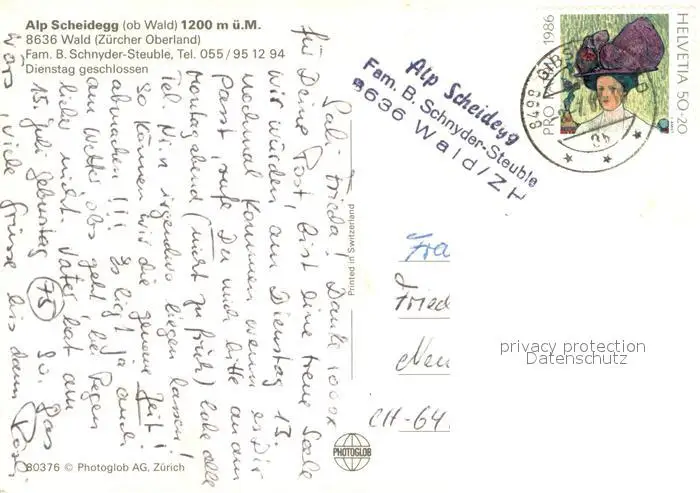 Alp Scheidegg (ob Wald) 1200 m ü.M.
8636 Wald (Zürcher Oberland)
Fam. B. Schnyder-Steuble, Tel. 055/95 12 94
Dienstag geschlossen
Sali Frieda! Danke 1000x
für Deine Post, bist eine treue Seele
wir würden am Dienstag 13.
nochmal kommen wenn es Dir
passt, rufe Du mich bitte an am
Montagabend (nicht zu früh) habe alle
Tel Nrn irgendwo liegen lassen!
so können wir die genaue Zeit
abmachen!!! Es liegt ja auch
am Wetter obs geht, bei Regen
lieber nicht. Vater hat am
15. Juli Geburtstag (75) So, das
wärs, viele Grüsse bis dann
80376 © Photoglob AG, Zürich
Printed in Switzerland
PHOTOGLOB
Alp Scheidegg
Fam. B. Schnyder-Steuble
8636 Wald/ZH
PRO
1986
HELVETIA 50+20
8498
Fra
Fried
Neu
CH-64
privacy protection
Datenschutz